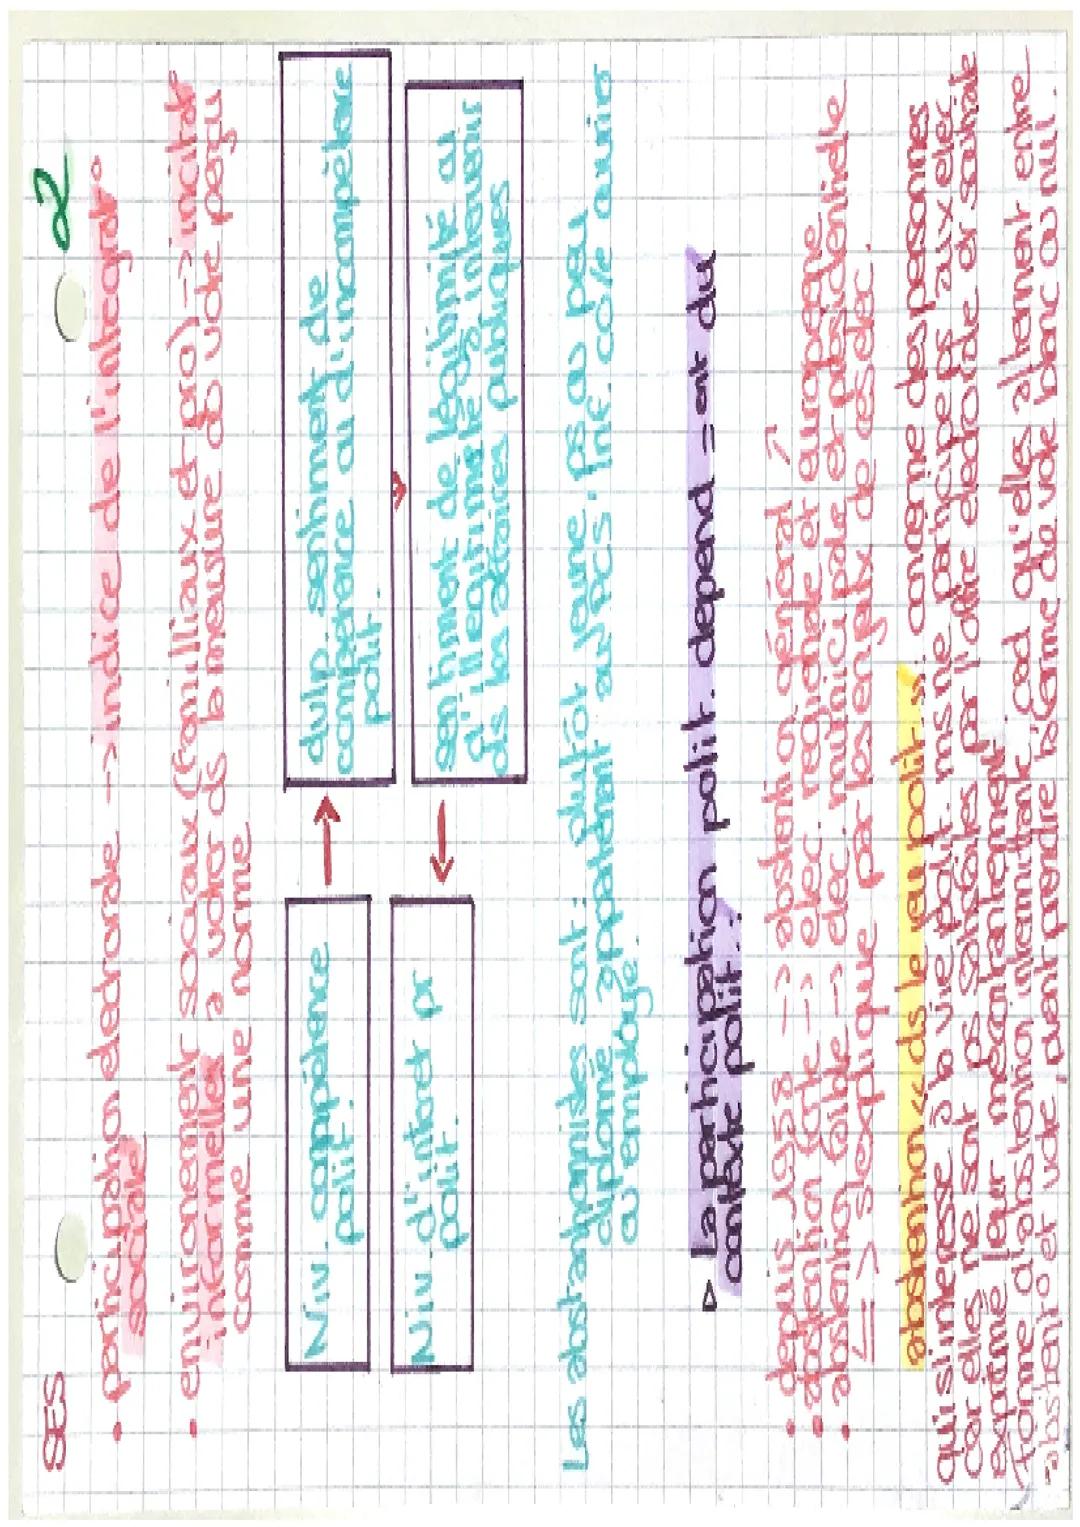 SES
2
• participatio electorale -> indice de l'intégrat°
sociale
• environnement sociaux (familliaux et pro) -> incite
informelle à voter ds la mesure où vote perçu
comme une norme
Niv. compétence
polit.
dvlp sentiment de
compétence ou d'incompétence
polit.
Niv. d'intérêt pr
polit.
sentiment de légitimité ou
d'illégitimité à intervenir
ds les affaires publiques
Les abstentionnistes sont : plutôt jeune, ps ou peu
diplomé, appartenant aux PCS : inf. cole ouvriers
et employé.
▷ La participation polit. depend = ent du
contexte polit. :
• depuis 1958 -> abstent° général ↗
• abstention forte -> elec. régionale et européenne
• abstention faible -> elec. municipale et présidentielle
=> s'explique par les enjeux de ces elec.
abstention « ds le jeu polit. » concerne des personnes
qui s'intéresse à la vie polit. ms ne participe ps aux elec
car elles ne sont ps satisfaites par l'offre electorale et souhaite
exprimé leur mécontentement
forme d'abstention intermittente, cad qu'elles alternent entre
abstent° et vote, peut prendre la forme du vote blanc ou nul.